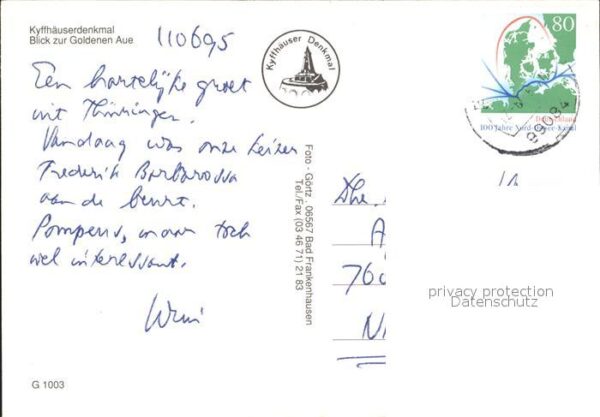 Kyffhäuserdenkmal
Blick zur Goldenen Aue
110695
Een hartelijke groet
uit Thüringen.
Vandaag was onze keizer
Frederik Barbarossa
aan de beurt.
Pompeus, maar toch
wel interessant.
G 1003
Kyffhäuser Denkmal
Foto - Görtz, 06567 Bad Frankenhausen
Tel./Fax (03 46 71) 21 83
80
Deutschland
100 Jahre Nord-Ostsee-Kanal
Dhr.
A
76
N
privacy protection
Datenschutz